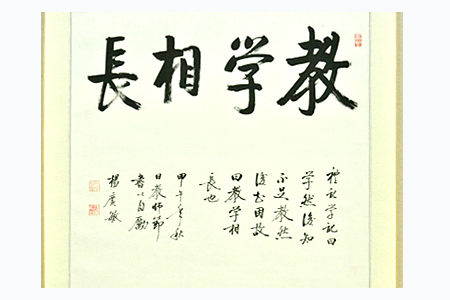 教学相長
禮記学記曰
学然後知
不足教然
後知困故
曰教学相
長也
甲午年秋
日教师節
書以自勵
楊廣敏